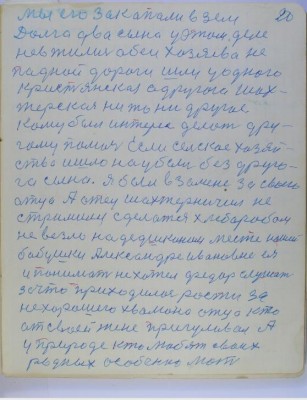 20
мы его закапали в зем
Долга два сына у этом деле
невжили обеи Хозяева не
падной дороги шли у одного
Кристянская а другога Шах-
терская ни то ни другое.
Кому был интерес делат дру-
гому помич Если селское хозяй
ство ишло на убыли без друго-
га сына. Я был взамене за свого
отца А отец шахтерничил не
стримился сделатся хлибаробом
не везло на дедушкином месте нашей
бабушки Александре ивановне ея
и понимат нехотел федар слушат
за что приходилос рости за
нехорошего хвамона отца кто
от своей жене пригуливал А
у природе кто любят своих
родных особенно мат